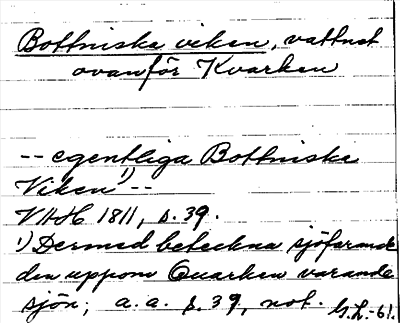 Bottniska viken, vattnet
ovanför Kvarken
-- egentliga Bottniska
Viken¹) --
VHH 1811, s. 39.
¹) Dermed beteckna sjöfarande
den uppom Quarken varande
sjön; a. a. s. 39, not. G.L.-61.